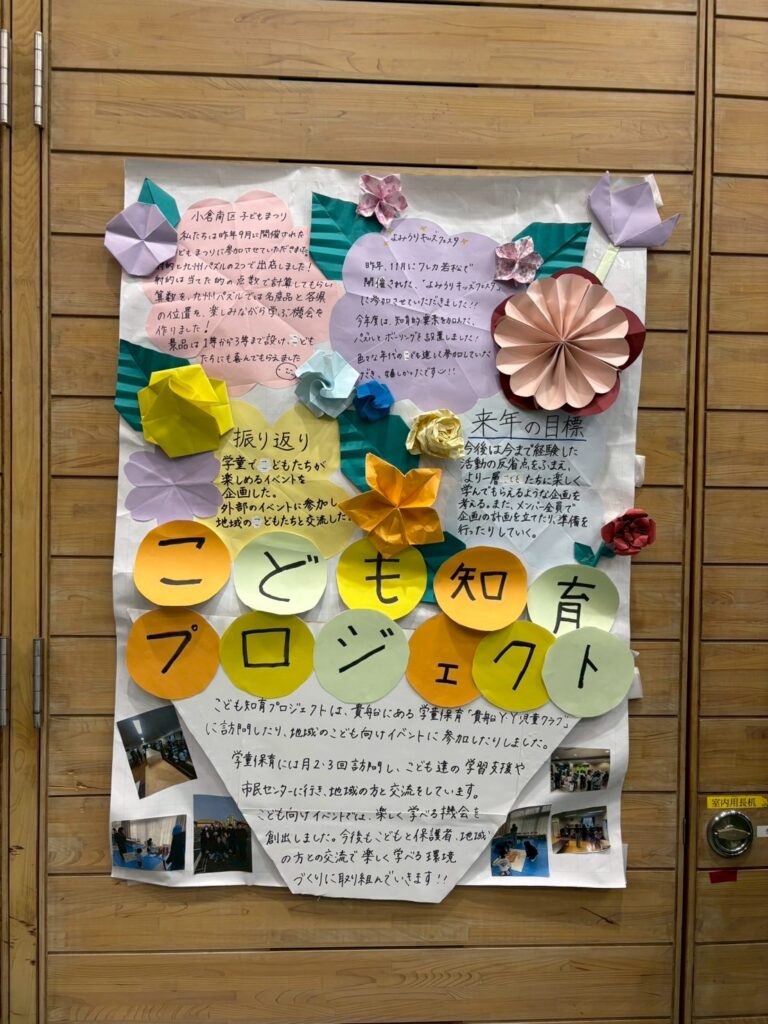 小倉南区 子どもまつり
私たちは昨年9月に開催された
どもまつりに参加させていただきました。
射的と九州パズルの2つで出店しました!
射的は当てた的の点数で計算してもらい
算数を、九州パズルでは名産品と各県
の位置を、楽しみながら学ぶ機会を
作りました!
景品は1等から3等まで設け、こども
たちにも喜んでもらえました
よみうりキッズフェスタ
昨年、11月にフレカ若松で
開催された、「よみうりキッズフェスタ」
に参加させていただきました!!
今年度は、知育的要素を加えた、
パズルとボーリングを設置しました!
色々な年代のこども達に参加していた
だき、嬉しかったです!!
振り返り
学童でこどもたちが
楽しめるイベントを
企画した。
外部のイベントに参加し
地域のこどもたちと交流した。
来年の目標
今後は今まで経験した
活動の反省点をふまえ、
より一層こどもたちに楽しく
学んでもらえるような企画を
考える。また、メンバー全員で
企画の計画を立てたり、準備を
行ったりしていく。
こども知育
プロジェクト
こども知育プロジェクトは、貴船にある学童保育「貴船Y.Y児童クラブ」
に訪問したり、地域のこども向けイベントに参加したりしました。
学童保育には月2・3回訪問し、こども達の学習支援や
市民センターに行き、地域の方と交流をしています。
こども向けイベントでは、楽しく学べる機会を
創出しました。今後もこどもと保護者、地域
の方との交流で楽しく学べる環境
づくりに取り組んでいきます!!
室内用長机